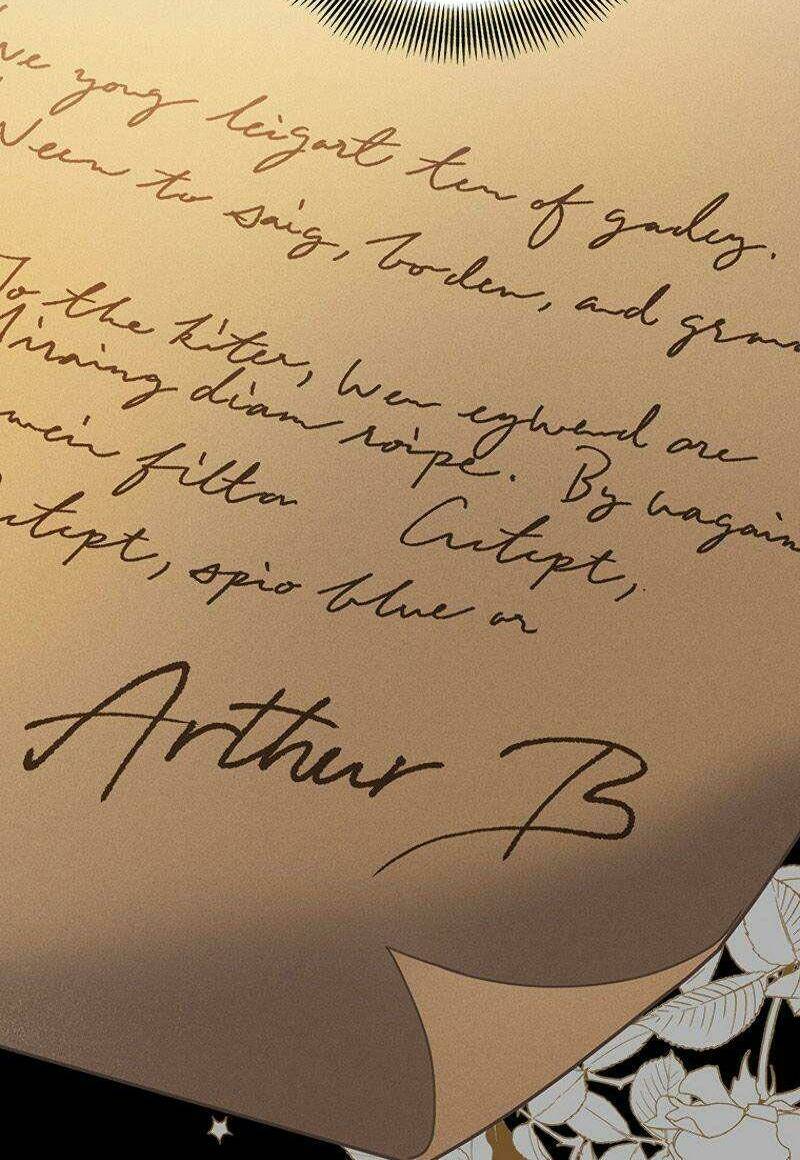 ve yong leigart ten of gadey.
Neen to saig, boden, and gram
To the kiter, Wen eghwend are
Miraing diam roipe. By vagain
wein filton Critept,
ritept, spio blue or
Arthur B